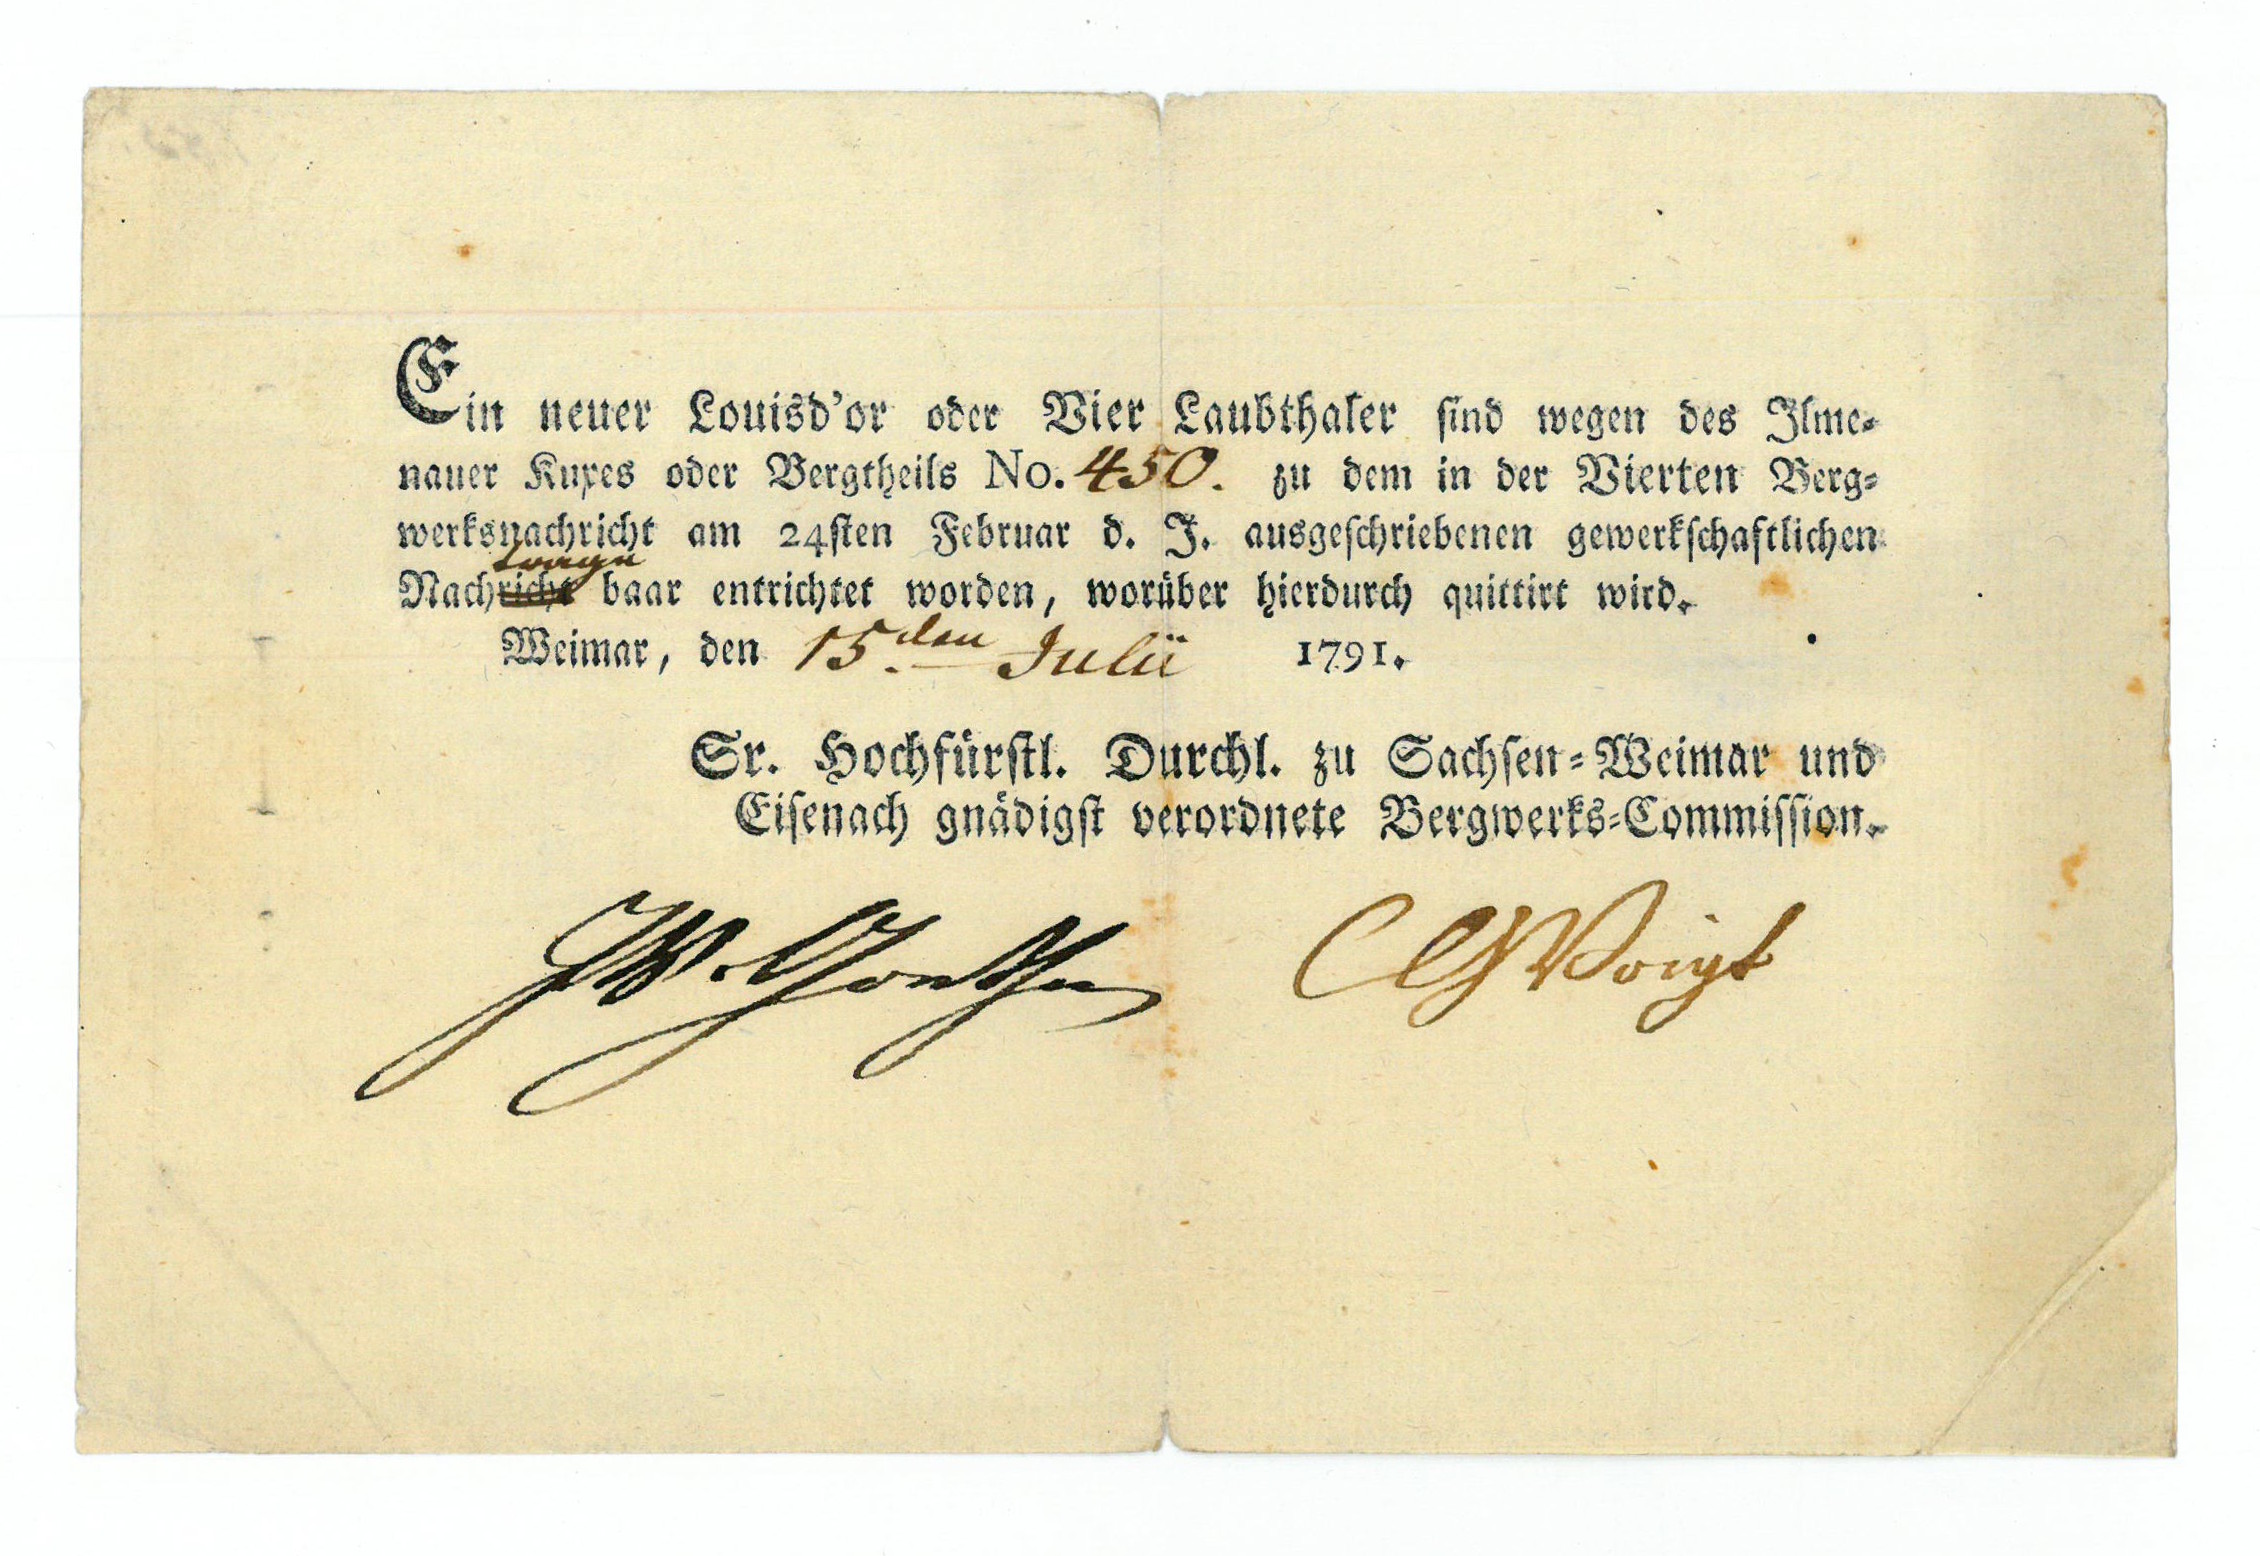 Ein neuer Louisd'or oder Vier Laubthaler sind wegen des Ilme-
nauer Kuxes oder Bergtheils No. 450. zu dem in der Vierten Berg-
werksnachricht am 24sten Februar d. J. ausgeschriebenen gewerkschaftlichen
Nachricht baar entrichtet worden, worüber hierdurch quittirt wird.
Weimar, den 15den Julii 1791.
Sr. Hochfürstl. Durchl. zu Sachsen-Weimar und
Eisenach gnädigst verordnete Bergwerks-Commission.
JW. Goethe CGVoigt